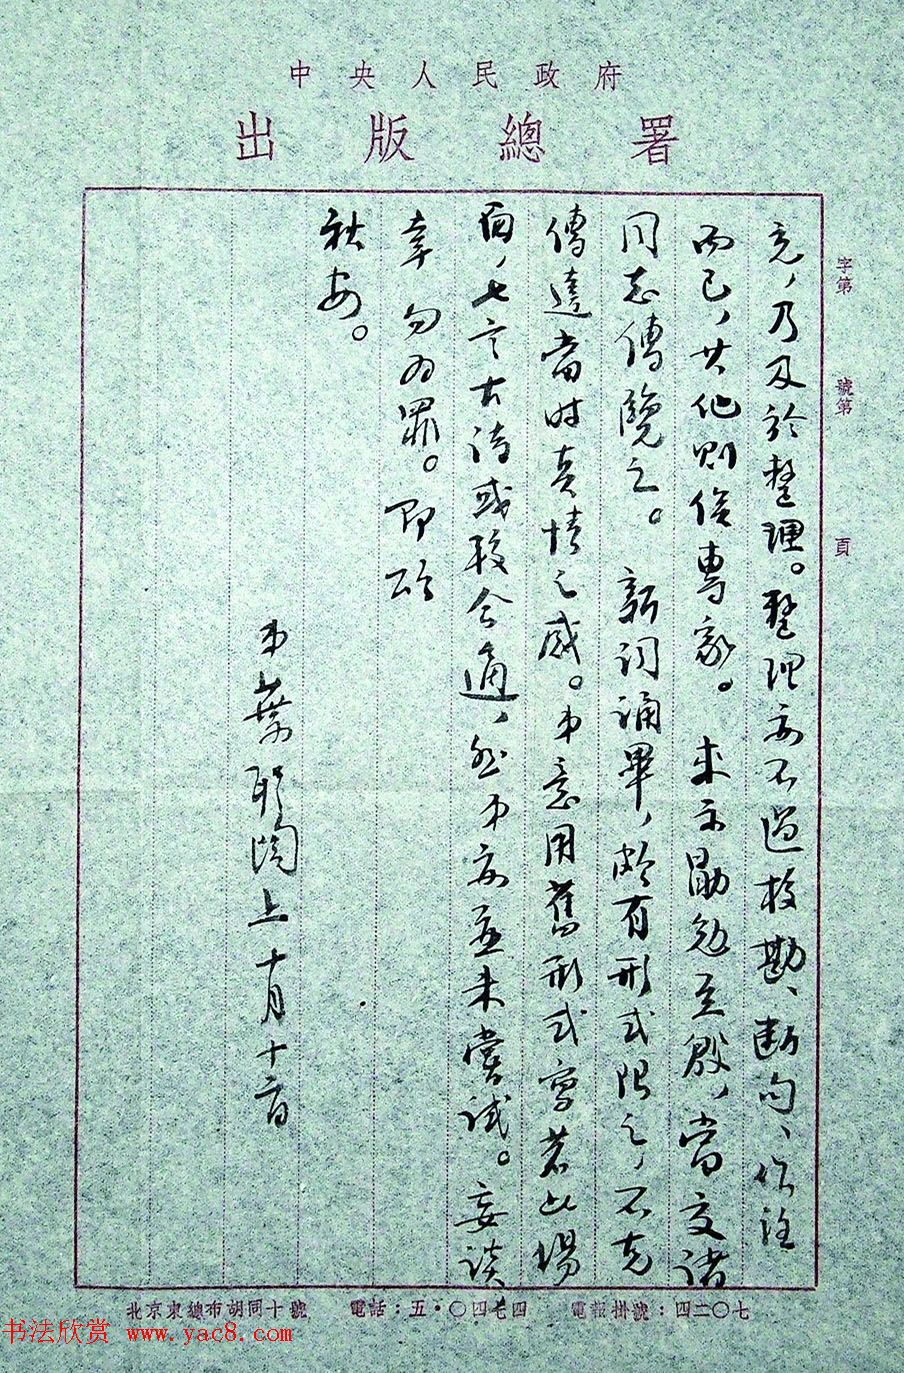 中央人民政府
出版總署
字第 號第 頁
竟，乃及於整理。整理亦不過校勘、斷句、作注
而已，其他則俟專家。來示勗勉至殷，當交諸
同志傳覽之。新詞誦畢，頗有形式限之，不克
傳達當時真情之感。弟意用舊形式寫若此場
面，七言古詩或較合適，然弟亦並未嘗試。妄談
幸勿為罪。即頌
秋安。
弟葉聖陶上十月十二日
北京東總布胡同十號 電話：五·〇四七四 電報掛號：四二〇七
书法欣赏 www.yac8.com